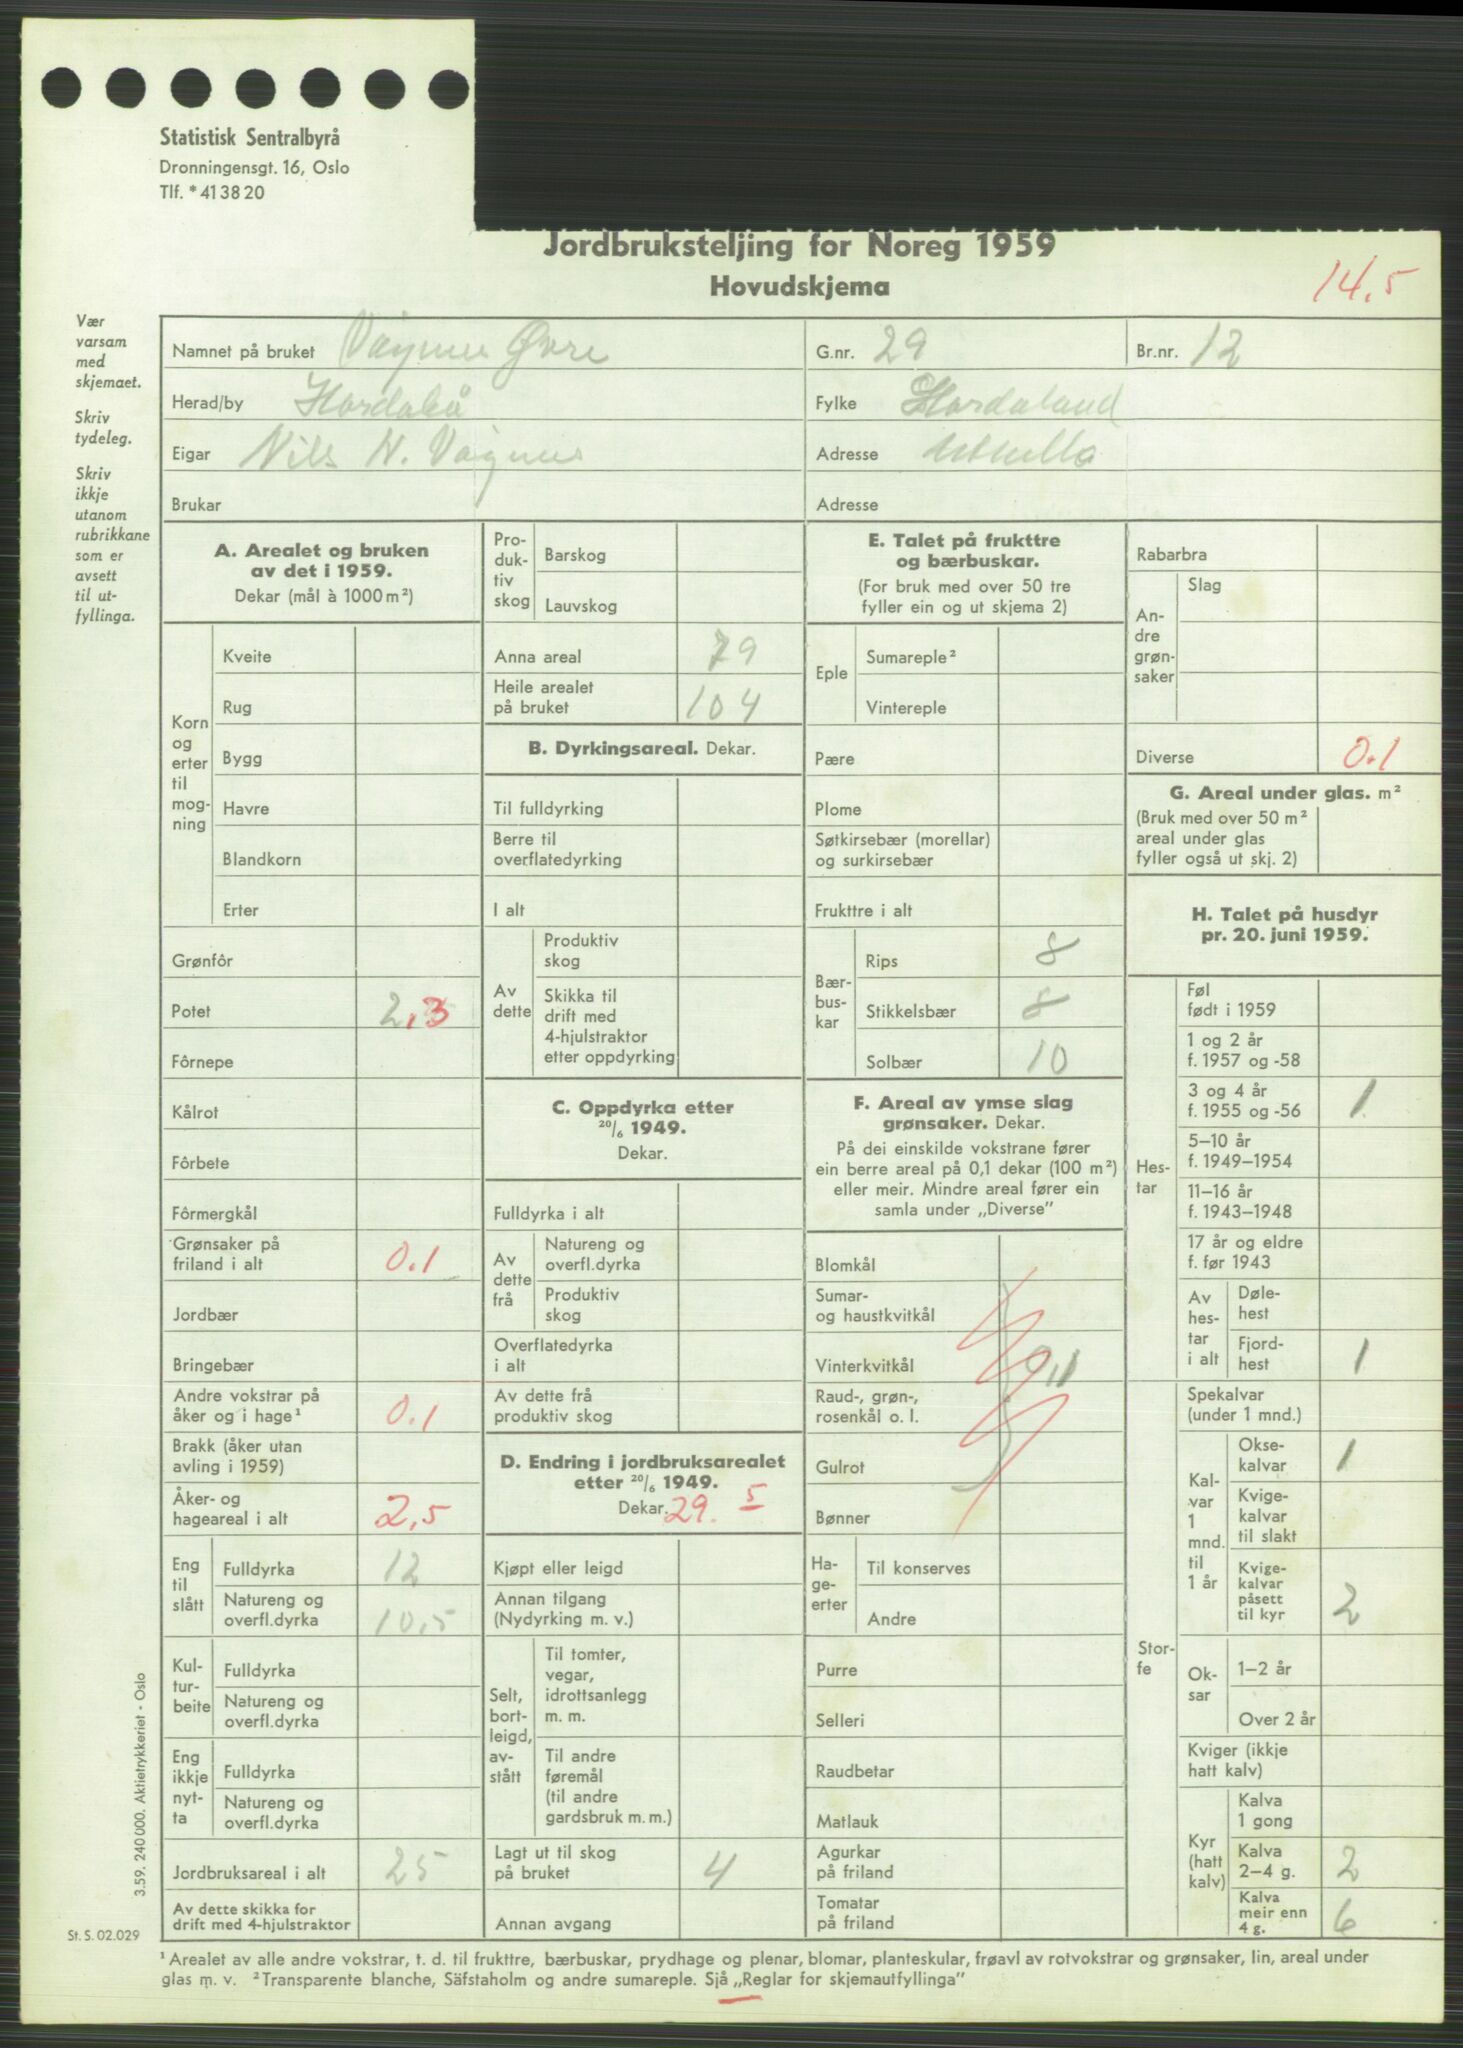 Statistisk Sentralbyrå
Dronningensgt. 16, Oslo
Tlf. *41 38 20
Jordbruksteljing for Noreg 1959
Hovudskjema
14,5
Vær
varsam
med
skjemaet.
Skriv
tydeleg.
Skriv
ikkje
utanom
rubrikkane
som er
avsett
til ut-
fyllinga.
Namnet på bruket Øvre
G.nr. 29
Br.nr. 12
Herad/by
Fylke Hordaland
Eigar Nils N.
Adresse
Brukar
Adresse
A. Arealet og bruken
av det i 1959.
Dekar (mål à 1000 m²)
Korn
og
erter
til
mog-
ning
Kveite
Rug
Bygg
Havre
Blandkorn
Erter
Grønfôr
Potet 2,3
Fôrnepe
Kålrot
Fôrbete
Fôrmergkål
Grønsaker på
friland i alt 0.1
Jordbær
Bringebær
Andre vokstrar på
åker og i hage¹ 0.1
Brakk (åker utan
avling i 1959)
Åker- og
hageareal i alt 2,5
Eng
til
slått
Fulldyrka 12
Natureng og
overfl.dyrka 10,5
Kul-
tur-
beite
Fulldyrka
Natureng og
overfl.dyrka
Eng
ikkje
nyt-
ta
Fulldyrka
Natureng og
overfl.dyrka
Jordbruksareal i alt 25
Av dette skikka for
drift med 4-hjulstraktor
Pro-
duk-
tiv
skog
Barskog
Lauvskog
Anna areal 79
Heile arealet
på bruket 104
B. Dyrkingsareal. Dekar.
Til fulldyrking
Berre til
overflatedyrking
I alt
Av
dette
Produktiv
skog
Skikka til
drift med
4-hjulstraktor
etter oppdyrking
C. Oppdyrka etter
20/6 1949.
Dekar.
Fulldyrka i alt
Av
dette
frå
Natureng og
overfl.dyrka
Produktiv
skog
Overflatedyrka
i alt
Av dette frå
produktiv skog
D. Endring i jordbruksarealet
etter 20/6 1949.
Dekar. 29. 5
Kjøpt eller leigd
Annan tilgang
(Nydyrking m. v.)
Selt,
bort-
leigd,
av-
stått
Til tomter,
vegar,
idrottsanlegg
m. m.
Til andre
føremål
(til andre
gardsbruk m. m.)
Lagt ut til skog
på bruket 4
Annan avgang
E. Talet på frukttre
og bærbuskar.
(For bruk med over 50 tre
fyller ein og ut skjema 2)
Eple
Sumareple²
Vintereple
Pære
Plome
Søtkirsebær (morellar)
og surkirsebær
Frukttre i alt
Bær-
bus-
kar
Rips 8
Stikkelsbær 8
Solbær 10
F. Areal av ymse slag
grønsaker. Dekar.
På dei einskilde vokstrane fører
ein berre areal på 0,1 dekar (100 m²)
eller meir. Mindre areal fører ein
samla under „Diverse”
Blomkål
Sumar-
og haustkvitkål
Vinterkvitkål 0,1
Raud-, grøn-,
rosenkål o. l.
Gulrot
Bønner
Ha-
ge-
erter
Til konserves
Andre
Purre
Selleri
Raudbetar
Matlauk
Agurkar
på friland
Tomatar
på friland
Rabarbra
An-
dre
grøn-
saker
Slag
Diverse 0.1
G. Areal under glas. m²
(Bruk med over 50 m²
areal under glas
fyller også ut skj. 2)
H. Talet på husdyr
pr. 20. juni 1959.
Hes-
tar
Føl
født i 1959
1 og 2 år
f. 1957 og -58
3 og 4 år
f. 1955 og -56 1
5–10 år
f. 1949–1954
11–16 år
f. 1943–1948
17 år og eldre
f. før 1943
Av
hes-
tar
i alt
Døle-
hest
Fjord-
hest 1
Stor-
fe
Spekalvar
(under 1 mnd.)
Kal-
var
1
mnd.
til
1 år
Okse-
kalvar 1
Kvige-
kalvar
til slakt
Kvige-
kalvar
påsett
til kyr 2
Ok-
sar
1–2 år
Over 2 år
Kviger (ikkje
hatt kalv)
Kyr
(hatt
kalv)
Kalva
1 gong
Kalva
2–4 g. 2
Kalva
meir enn
4 g. 6
3.59. 240 000. Aktietrykkeriet - Oslo
St. S. 02.029
¹ Arealet av alle andre vokstrar, t. d. til frukttre, bærbuskar, prydhage og plenar, blomar, planteskular, frøavl av rotvokstrar og grønsaker, lin, areal under
glas m. v. ² Transparente blanche, Säfstaholm og andre sumareple. Sjå „Reglar for skjemautfyllinga”